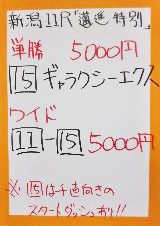 新潟11R「邁進特別」
単勝 5000円
15 ギャラクシーエクス
ワイド
11-15 5000円
※15は千直向きの
スタートダッシュあり!!